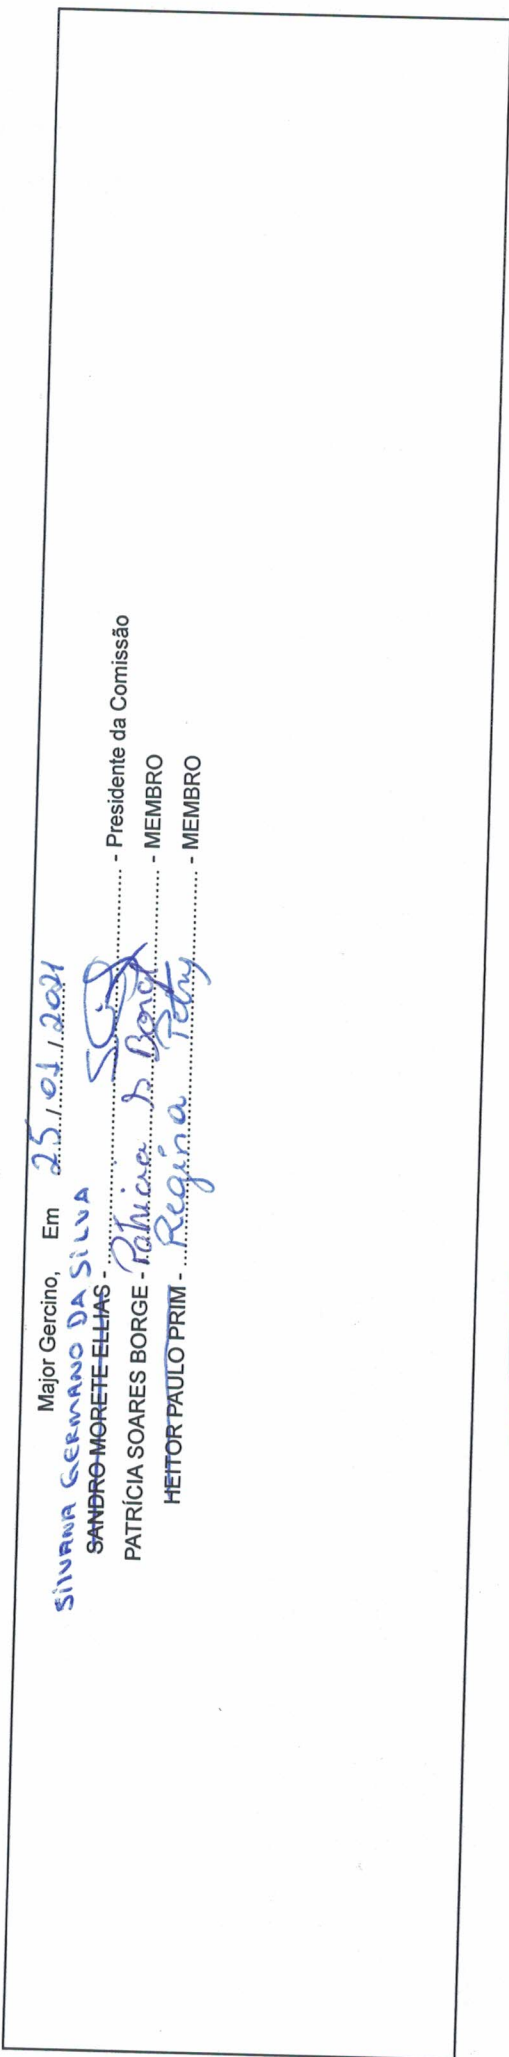 Major Gercino, Em 25/01/2021
SILVANA GERMANO DA SILVA
SANDRO MORETE ELLIAS - ........................ - Presidente da Comissão
PATRÍCIA SOARES BORGE - Patricia S Borge ............ - MEMBRO
HEITOR PAULO PRIM - .... Regina Petry ............ - MEMBRO